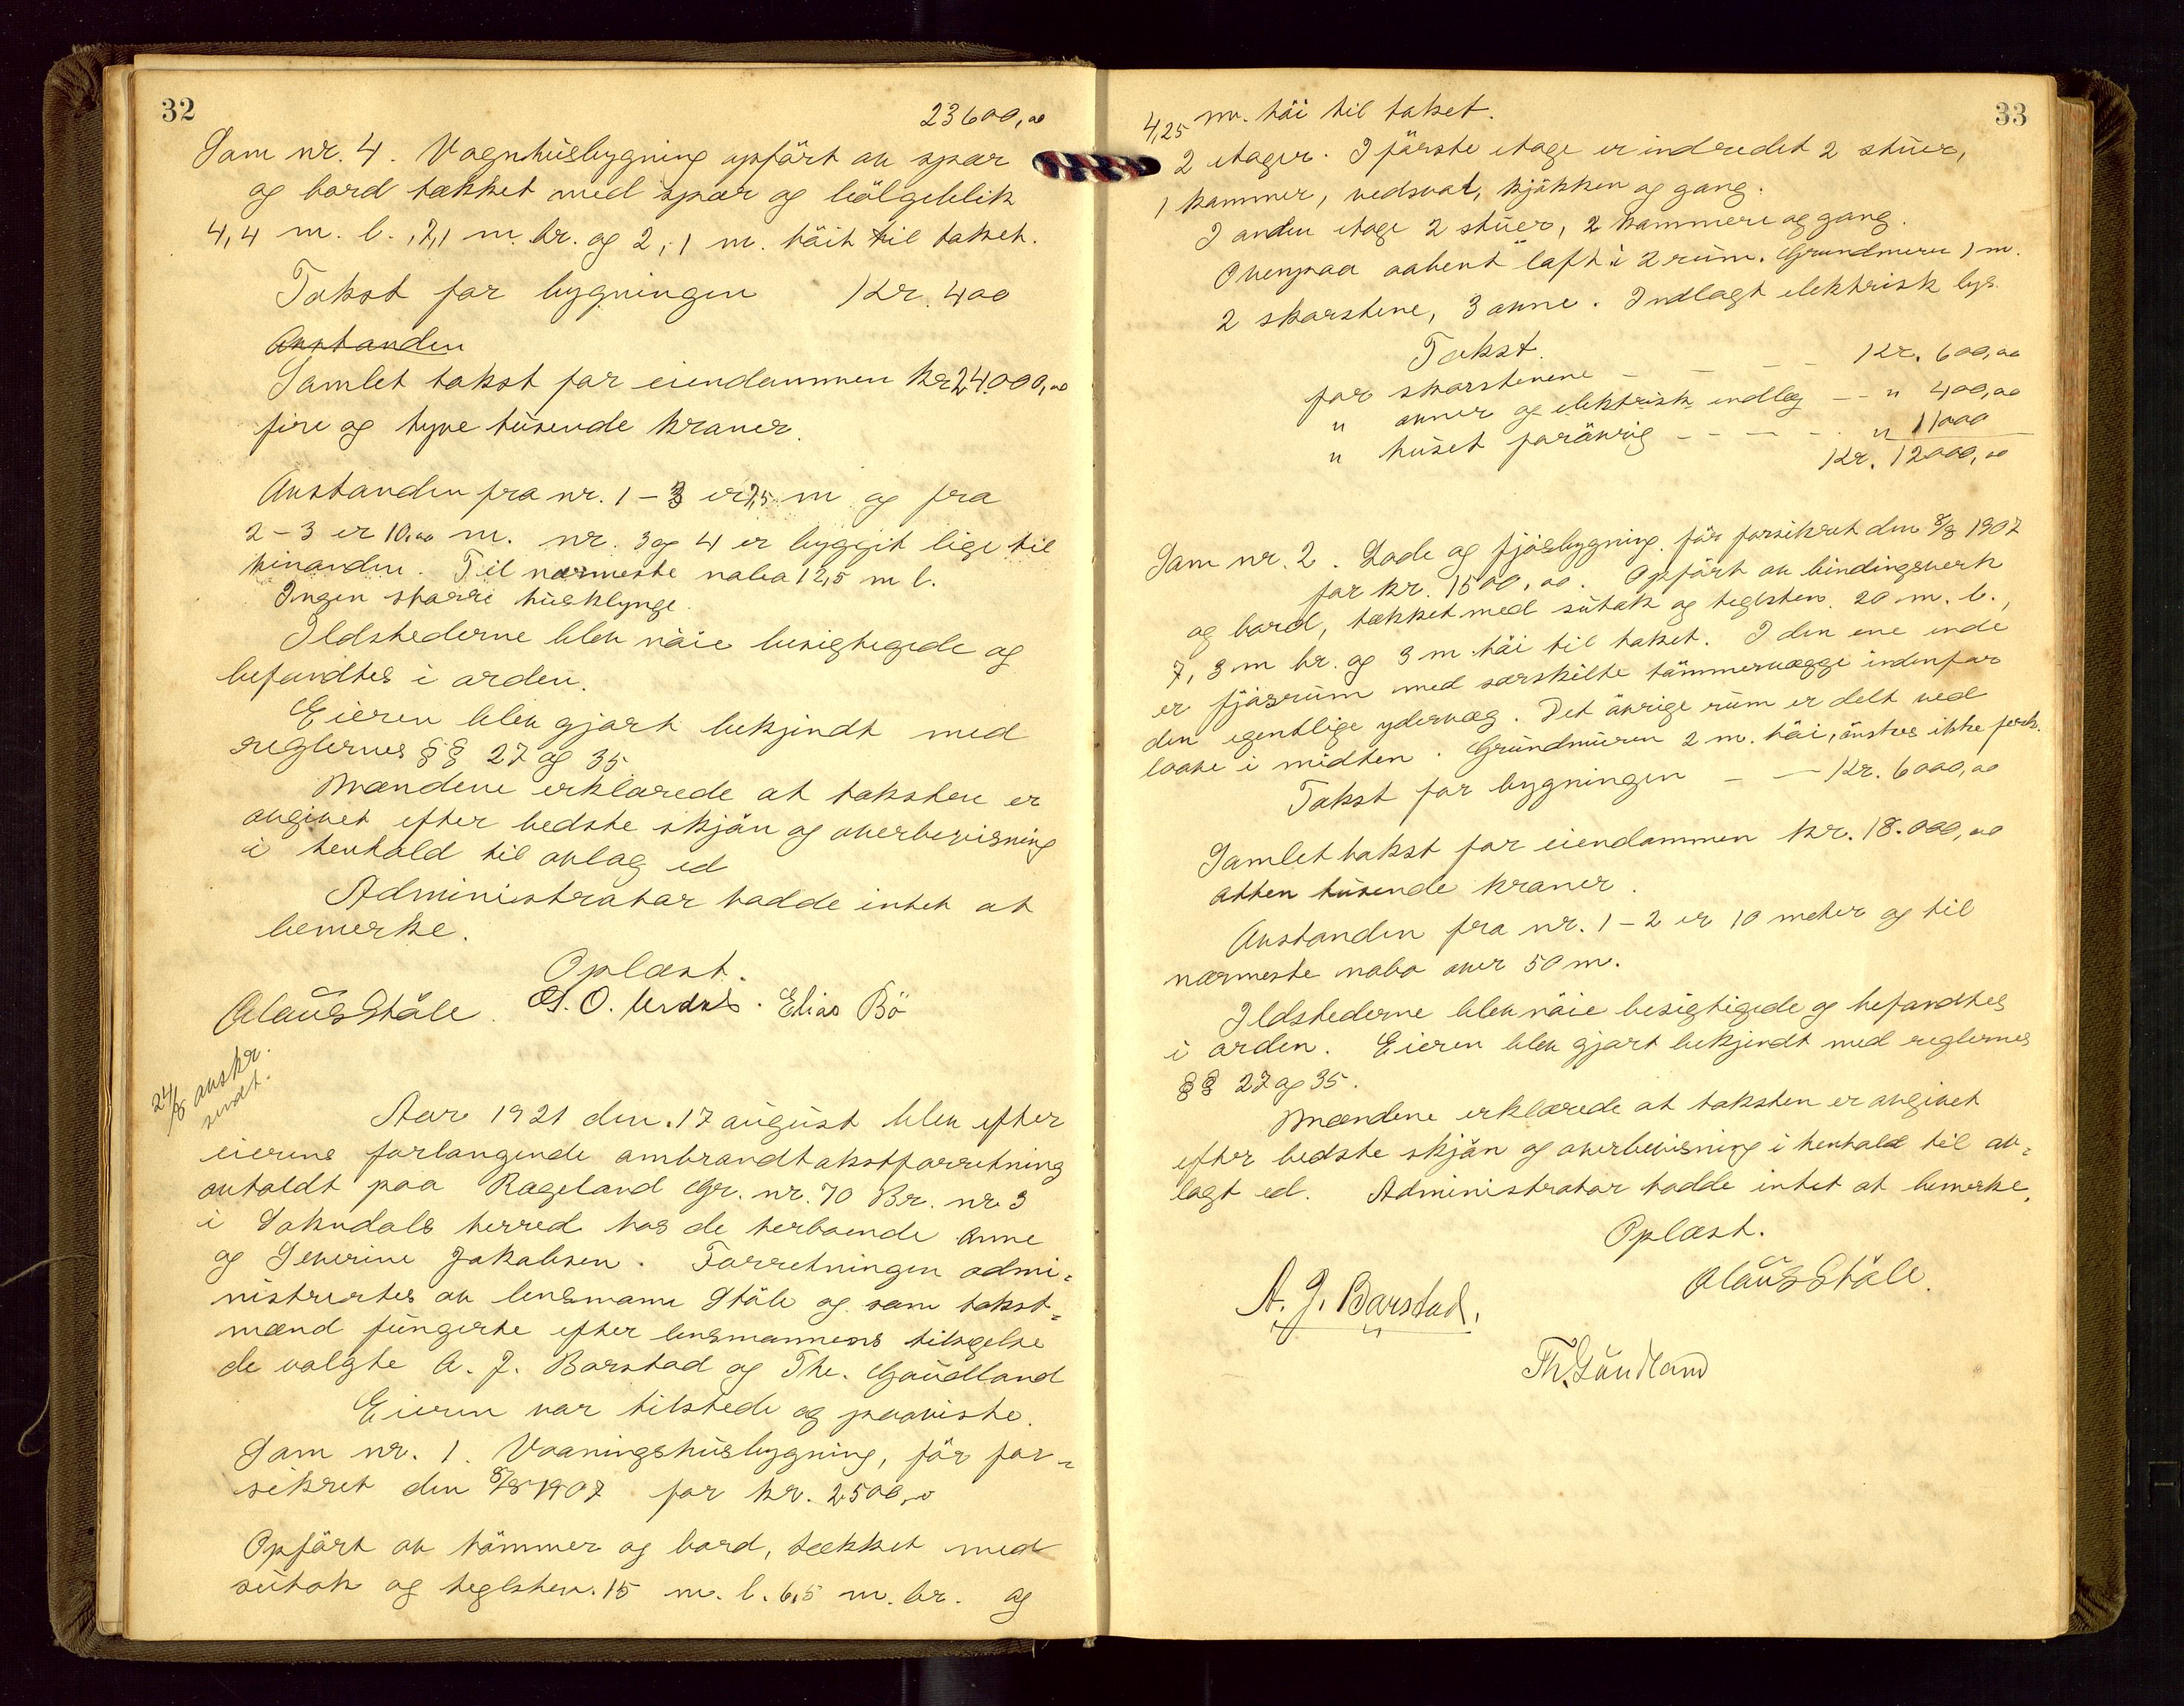 32
23600,00
Som nr. 4. Vognhusbygning opført av spær
og bord tækket med spær og bölgeblik
4,4 m. l., 2,1 m. br. og 2,1 m. höit til taket.
Takst for bygningen Kr. 400
Avstanden
Samlet takst for eiendommen kr 24.000,00
fire og tyve tusende kroner.
Avstanden fra nr. 1-3 er 7,5 m og fra
2-3 er 10,00 m. nr. 3 og 4 er byggit lige til
hinanden. Til nærmeste nabo 12,5 m l.
Ingen større husklynge.
Ildstederne blev nöie besigtigede og
befandtes i orden.
Eieren blev gjort bekjendt med
reglernes §§ 27 og 35
Mændene erklærede at taksten er
avgivet efter bedste skjön og overbevisning
i henhold til avlag ed
Administrator hadde intet at
bemerke.
Oplæst.
Olaus Stöle. O. Elias Bö
24/8 avskr.
sendt.
Aar 1921 den 17 august blev efter
eierens forlangende ombrandtakstforretning
avholdt paa Rageland Gr. nr. 70 Br. nr 3
i Sokndals herred hos de herboende Anne
og Severine Jakobsen. Forretningen admi-
nistrertes av lensmann Stöle og som takst-
mænd fungerte efter lensmannens tilsigelse
de valgte A. J. Barstad og Th. Gaudland
Eieren var tilstede og paaviste.
Som nr. 1. Vaaningshusbygning, för for-
sikret den 8/8 1907 for kr. 2500,00
Opfört av tömmer og bord, tækket med
sutak og teglsten. 15 m. l. 6,5 m. br. og
33
4,25 m. höi til taket.
2 etager. I förste etage er indredet 2 stuer,
1 kammer, vedsval, kjökken og gang.
I anden etage 2 stuer, 2 kammere og gang.
Ovenpaa aabent loft i 2 rum. Grundmuren 1 m.
2 skorstene, 3 ovne. Indlagt elektrisk lys.
Takst.
for skorstenene - - - Kr. 600,00
" ovner og elektrisk indlæg -- " 400,00
" huset foröwrig ---- " 11000
Kr. 12000,00
Som nr. 2. Lade og fjösbygning, för forsikret den 8/8 1907
for kr. 1500,00. Opfört av bindingsverk
og bord, tækket med sutak og teglsten. 20 m. l.,
7,3 m br. og 3 m höi til taket. I den ene ende
er fjösrum med særskilte tömmervægge indenfor
den egentlige ydervæg. Det övrige rum er delt ved
loave i midten. Grundmuren 2 m. höi, önskes ikke fork.
Takst for bygningen - - Kr. 6000,00
Samlet takst for eiendommen kr. 18.000,00
atten tusende kroner.
Avstanden fra nr. 1-2 er 10 meter og til
nærmeste nabo over 50 m.
Ildstederne blev nöie besigtigede og befandtes
i orden. Eieren blev gjort bekjendt med reglernes
§§ 27 og 35.
Mændene erklærede at taksten er avgivet
efter bedste skjön og overbevisning i henhold til av-
lagt ed. Administrator hadde intet at bemerke.
Oplæst.
Olaus Stöle.
A. J. Barstad.
Th. Gaudland